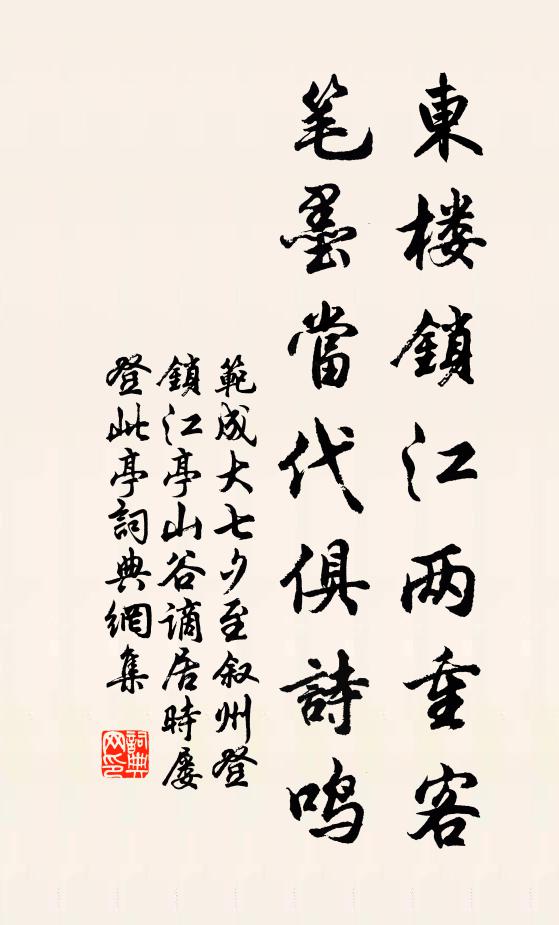 東楼鎖江两重客
笔墨當代俱詩鳴
範成大七夕至叙州登
鎖江亭山谷谪居時屡
登此亭詞典網集
詞典网印